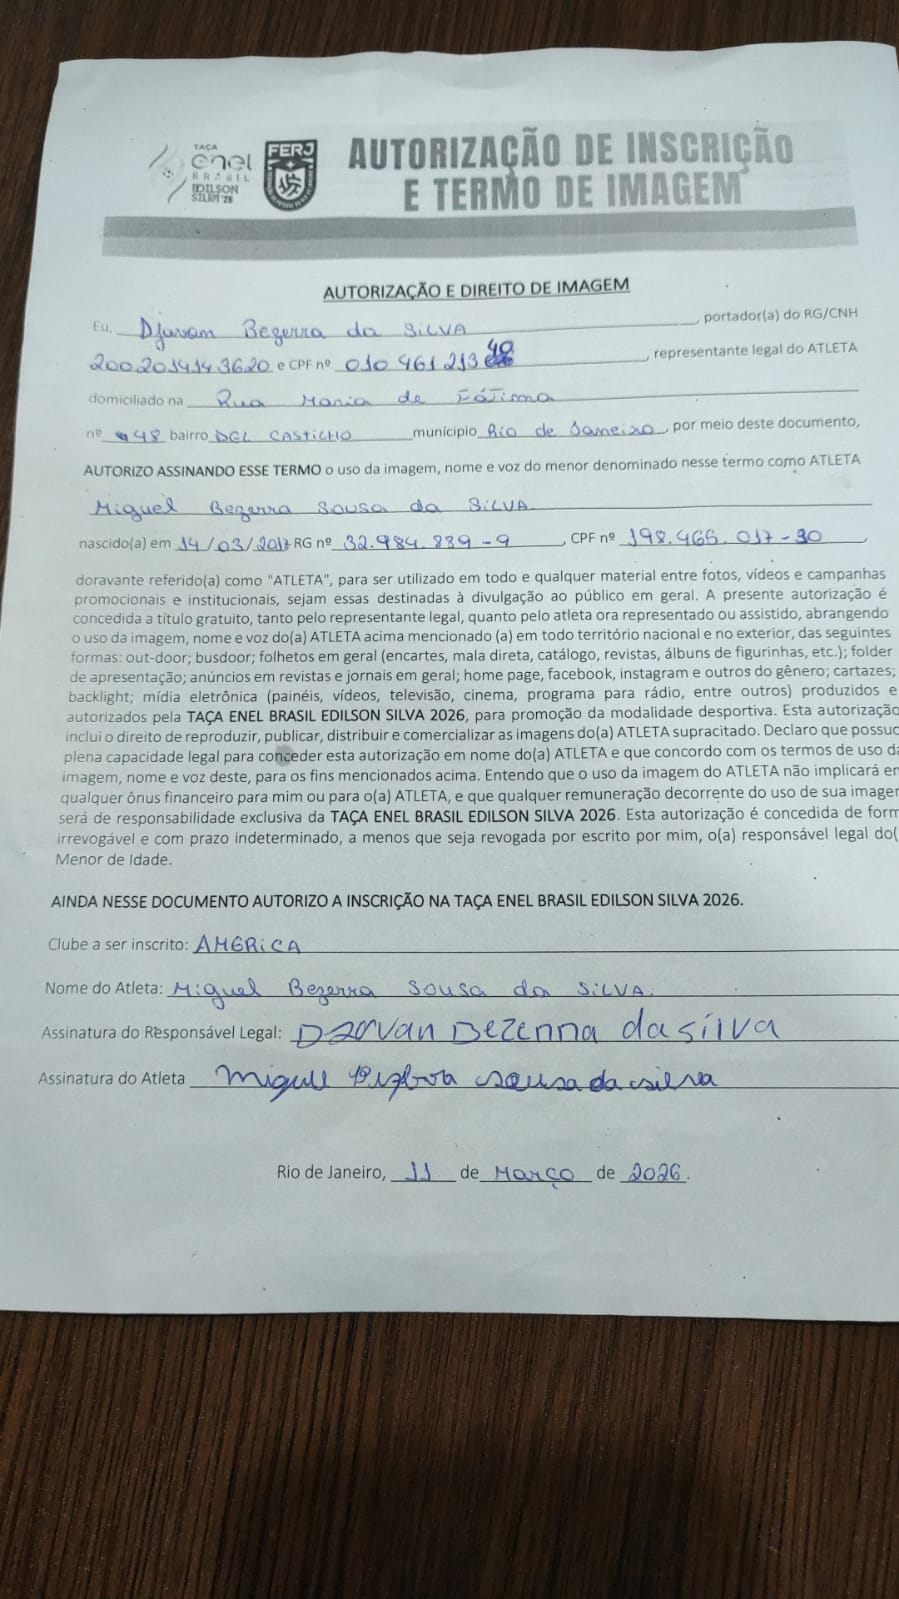 TAÇA
enel
BRASIL
EDILSON
SILVA '26
FERJ
AUTORIZAÇÃO DE INSCRIÇÃO
E TERMO DE IMAGEM
AUTORIZAÇÃO E DIREITO DE IMAGEM
Eu, Djavam Bezerra da SILVA, portador(a) do RG/CNH
2002014143620 e CPF nº 010 461 213 40, representante legal do ATLETA
domiciliado na Rua Maria de Fátima
nº 48 bairro DEL CASTILHO município Rio de Janeiro, por meio deste documento,
AUTORIZO ASSINANDO ESSE TERMO o uso da imagem, nome e voz do menor denominado nesse termo como ATLETA
Miguel Bezerra Sousa da SILVA
nascido(a) em 14/03/2017 RG nº 32.984.839-9, CPF nº 198.466.017-30,
doravante referido(a) como "ATLETA", para ser utilizado em todo e qualquer material entre fotos, vídeos e campanhas
promocionais e institucionais, sejam essas destinadas à divulgação ao público em geral. A presente autorização é
concedida a título gratuito, tanto pelo representante legal, quanto pelo atleta ora representado ou assistido, abrangendo
o uso da imagem, nome e voz do(a) ATLETA acima mencionado (a) em todo território nacional e no exterior, das seguintes
formas: out-door; busdoor; folhetos em geral (encartes, mala direta, catálogo, revistas, álbuns de figurinhas, etc.); folder
de apresentação; anúncios em revistas e jornais em geral; home page, facebook, instagram e outros do gênero; cartazes;
backlight; mídia eletrônica (painéis, vídeos, televisão, cinema, programa para rádio, entre outros) produzidos e
autorizados pela TAÇA ENEL BRASIL EDILSON SILVA 2026, para promoção da modalidade desportiva. Esta autorização
inclui o direito de reproduzir, publicar, distribuir e comercializar as imagens do(a) ATLETA supracitado. Declaro que possuo
plena capacidade legal para conceder esta autorização em nome do(a) ATLETA e que concordo com os termos de uso da
imagem, nome e voz deste, para os fins mencionados acima. Entendo que o uso da imagem do ATLETA não implicará em
qualquer ônus financeiro para mim ou para o(a) ATLETA, e que qualquer remuneração decorrente do uso de sua imagem
será de responsabilidade exclusiva da TAÇA ENEL BRASIL EDILSON SILVA 2026. Esta autorização é concedida de form
irrevogável e com prazo indeterminado, a menos que seja revogada por escrito por mim, o(a) responsável legal do(
Menor de Idade.
AINDA NESSE DOCUMENTO AUTORIZO A INSCRIÇÃO NA TAÇA ENEL BRASIL EDILSON SILVA 2026.
Clube a ser inscrito: AMÉRICA
Nome do Atleta: Miguel Bezerra Sousa da SILVA.
Assinatura do Responsável Legal: Djavan Bezerra da silva
Assinatura do Atleta Miguel sousa da silva
Rio de Janeiro, 11 de Março de 2026.